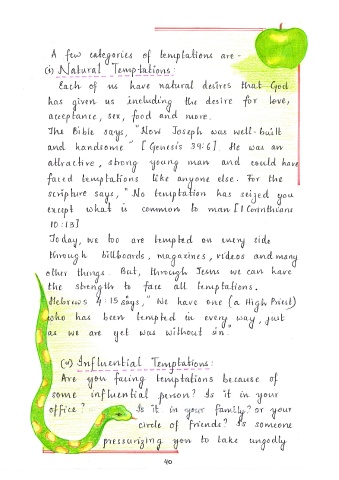 A few categories of temptations are -
(i) Natural Temptations:
Each of us have natural desires that God
has given us including the desire for love,
acceptance, sex, food and more.
The Bible says, "Now Joseph was well-built
and handsome" [Genesis 39:6]. He was an
attractive, strong young man and could have
faced temptations like anyone else. For the
scripture says, "No temptation has seized you
except what is common to man [1 Corinthians
10:13]
Today, we too are tempted on every side
through billboards, magazines, videos and many
other things. But, through Jesus we can have
the strength to face all temptations.
Hebrews 4:15 says, "We have one (a High Priest)
who has been tempted in every way, just
as we are yet was without sin."
(ii) Influential Temptations:
Are you facing temptations because of
some influential person? Is it in your
office? Is it in your family? or your
circle of friends? Is someone
pressurizing you to take ungodly
40